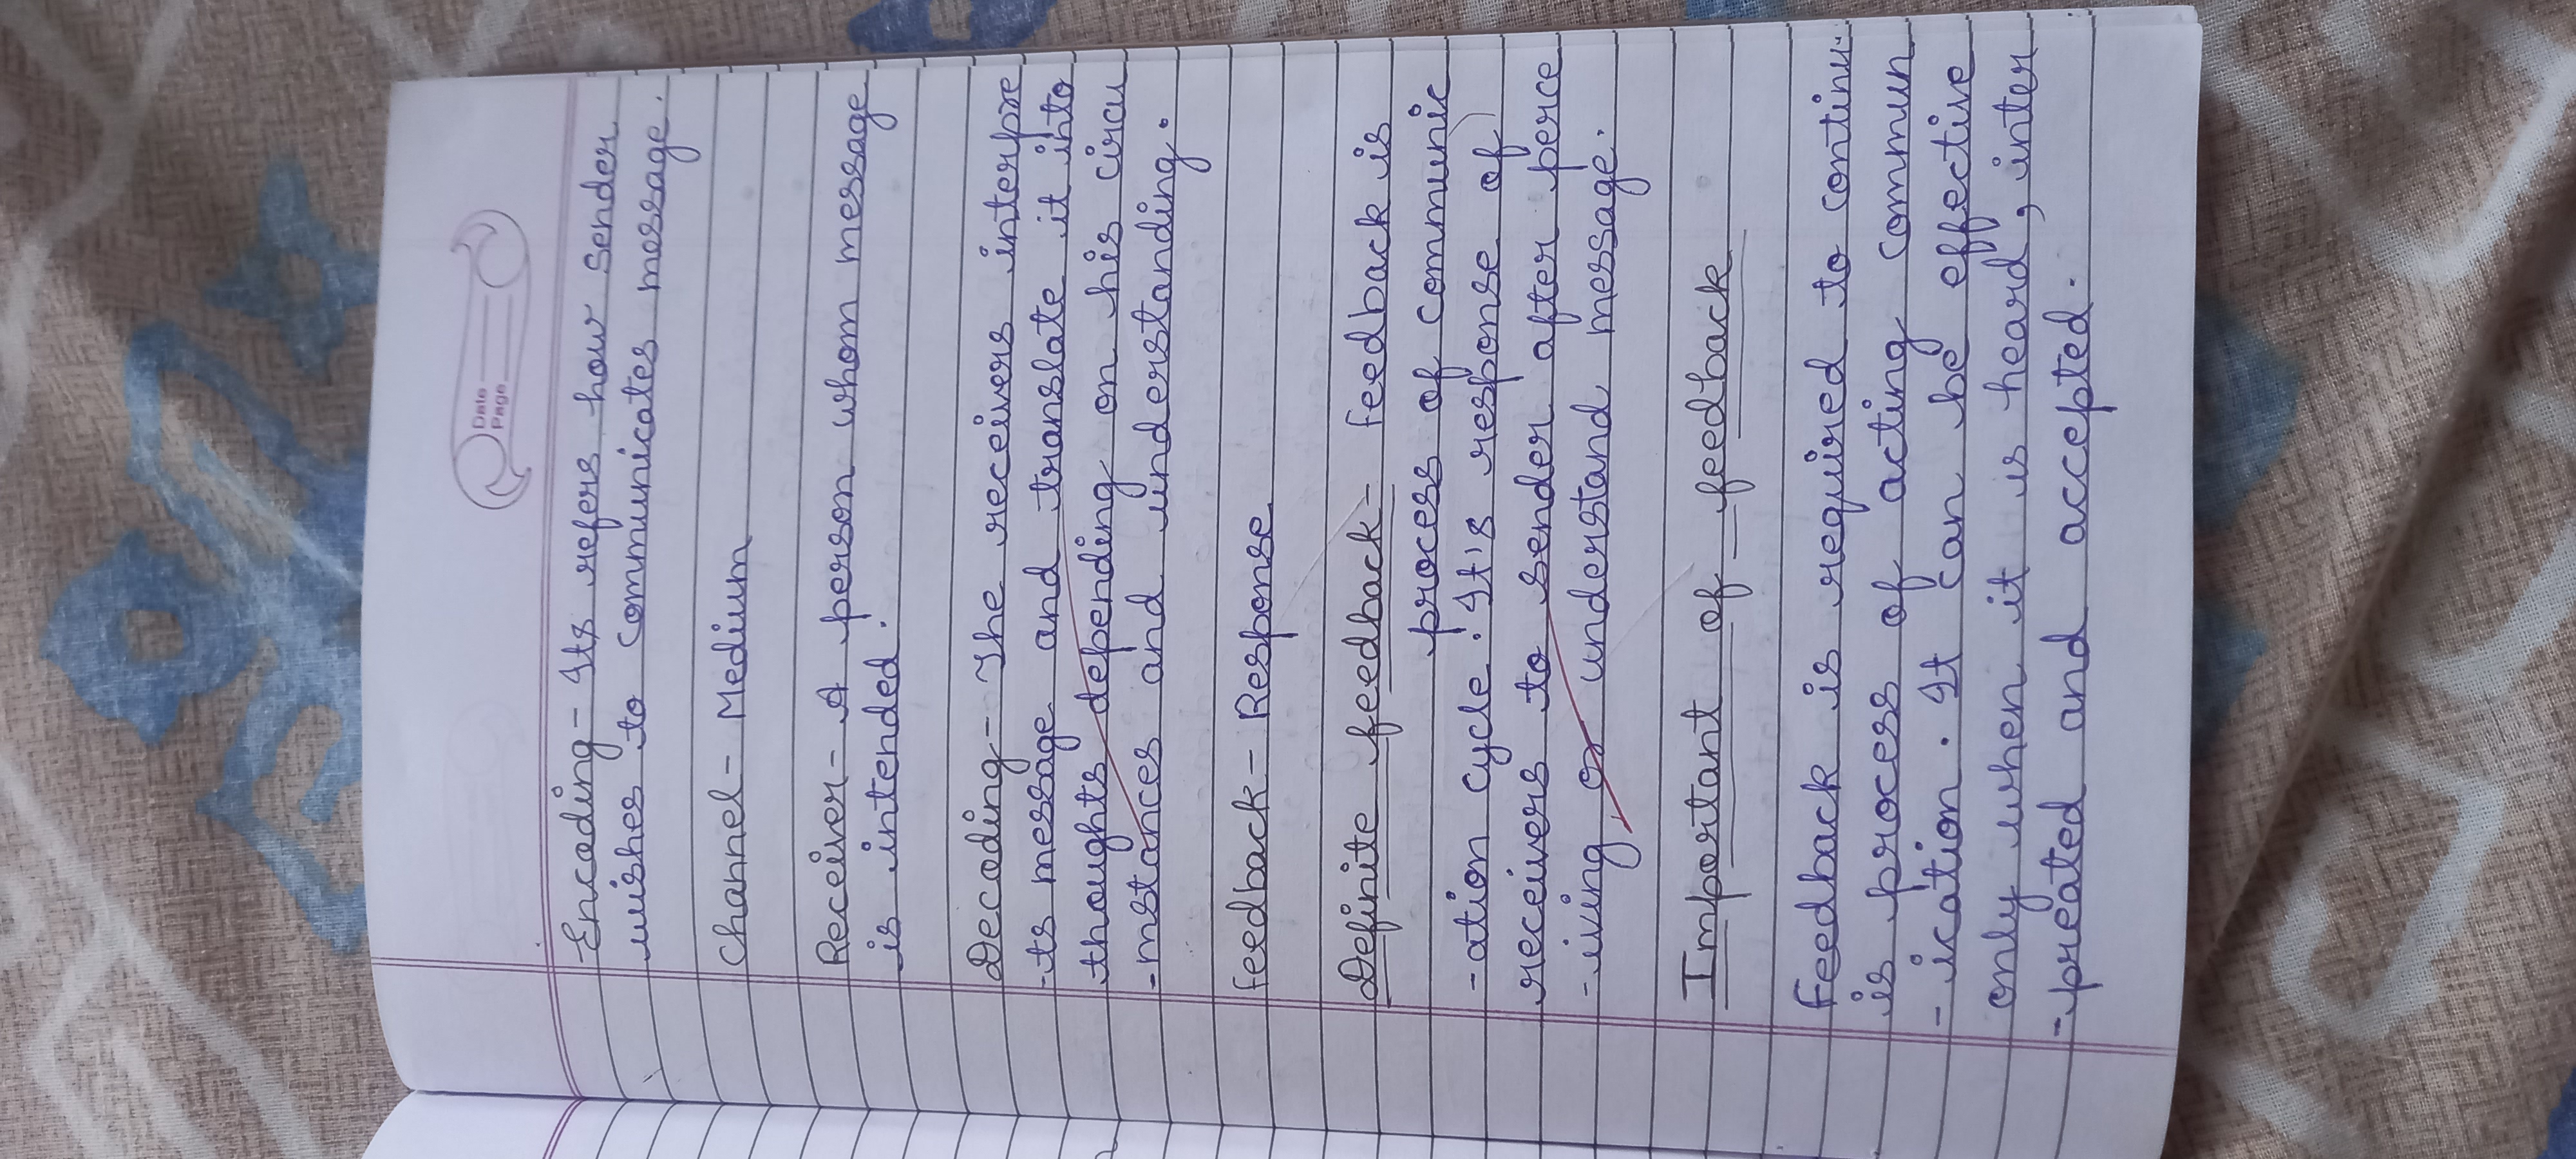 Date
Page
Encoding - Its refers how sender
wishes to communicates message.
Channel - Medium
Receiver - A person whom message
is intended.
Decoding - The receivers interpre
-ts message and translate it into
thoughts depending on his circu
-mstances and understanding.
Feedback - Response
Definite feedback - Feedback is
process of communic
-ation cycle. It's response of
receivers to sender after perce
-iving or understand message.
Important of feedback
Feedback is required to continu..
is process of acting commun
-ication. It can be effective
only when it is heard, inter
-preated and accepted.